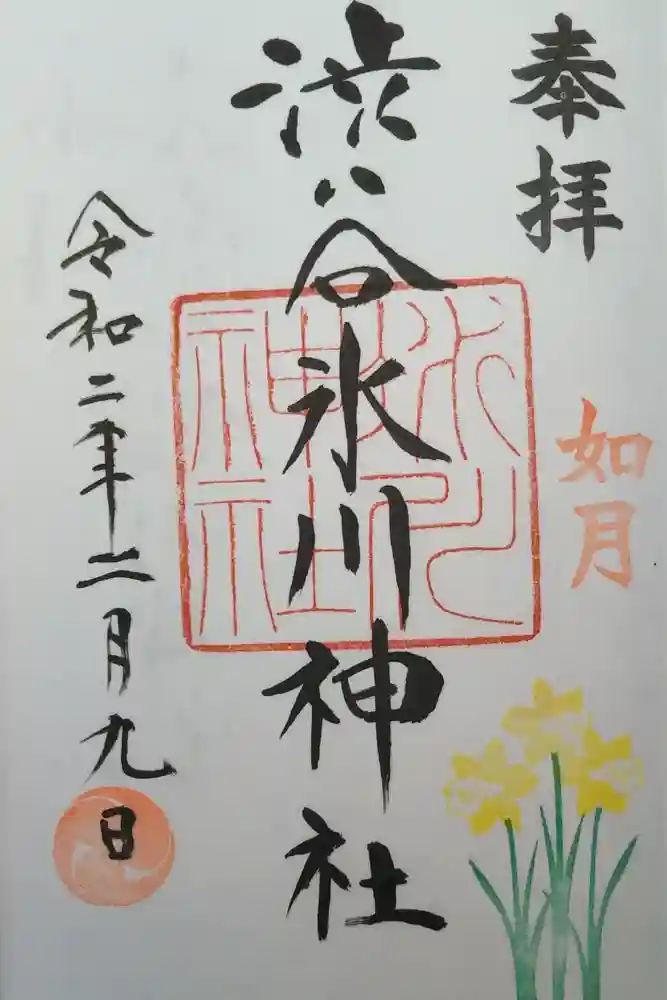 奉拝
如月
渋谷氷川神社
氷川神社
令和二年二月九日